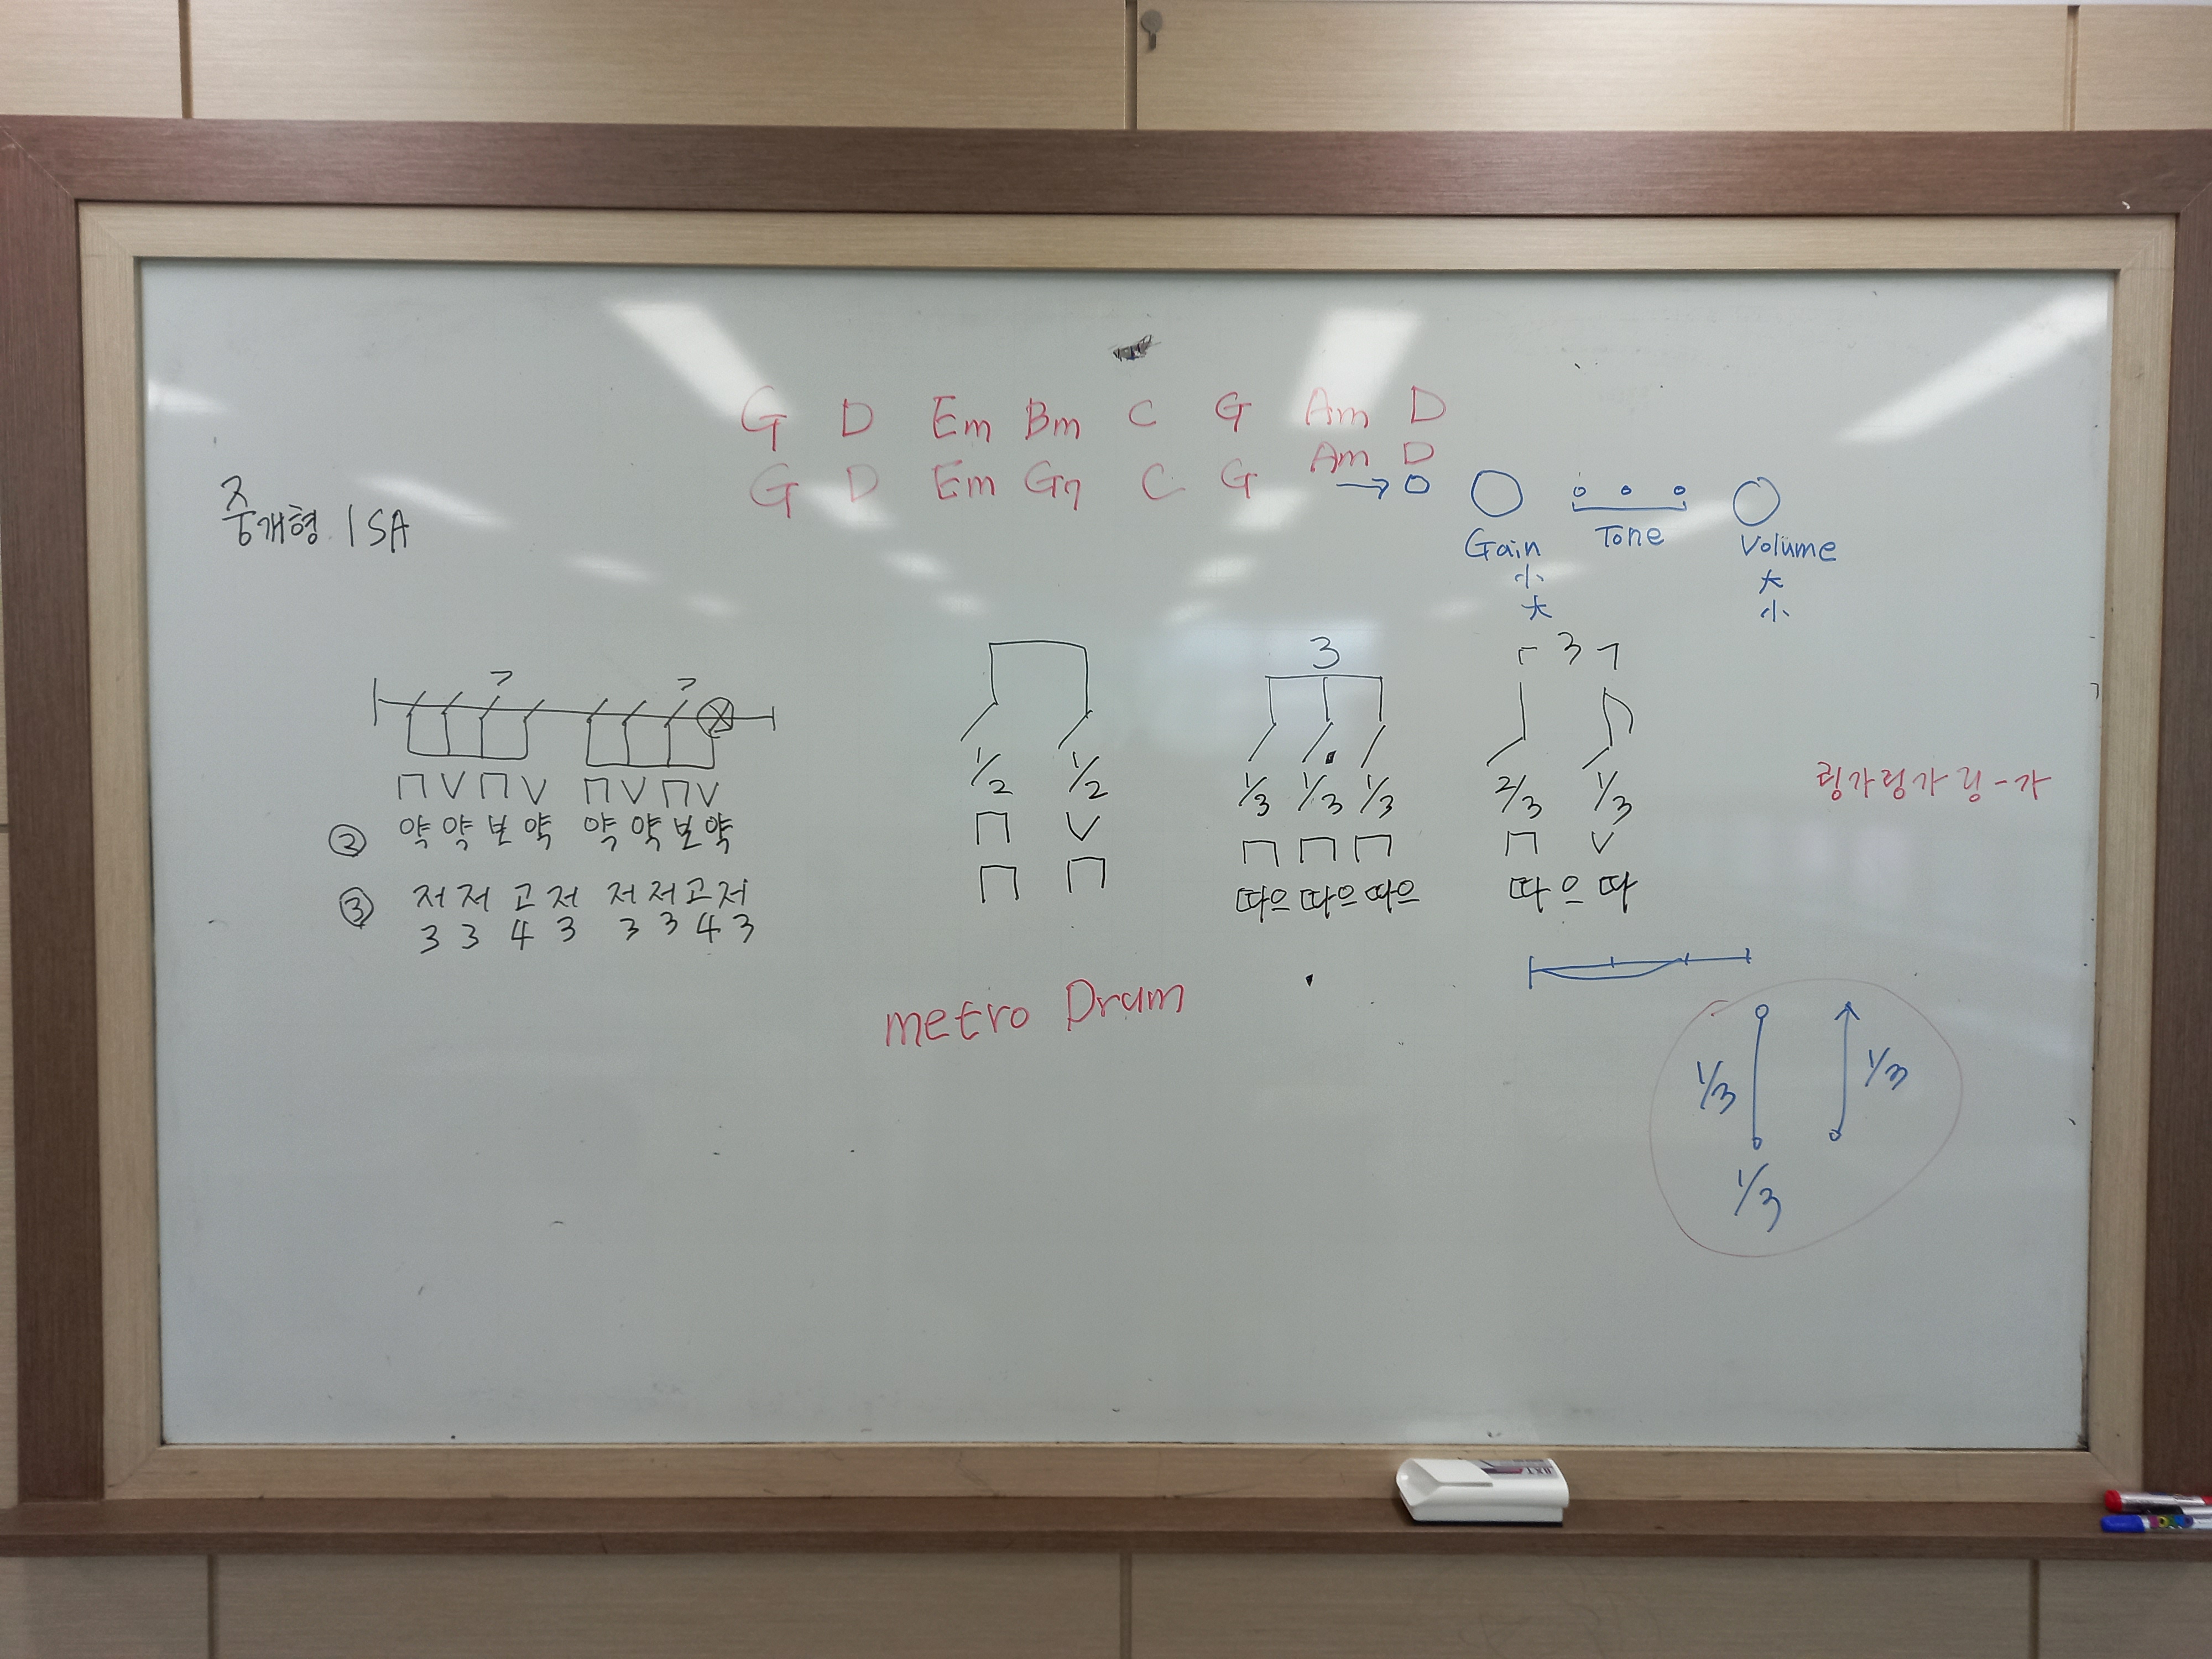 G D Em Bm C G Am D
Am D
G D Em G7 C G
중개형 ISA
Gain Tone Volume
小 大
大 小
> >
3
3
1/2 1/2
1/3 1/3 1/3
2/3 1/3
V V V V
② 약 약 보 약 약 약 보 약
V
V
③ 저 저 고 저 저 저 고 저
3 3 4 3 3 3 4 3
따으 따으 따으
따 으 따
링가링가 링-가
metro Drum
1/3 1/3
1/3